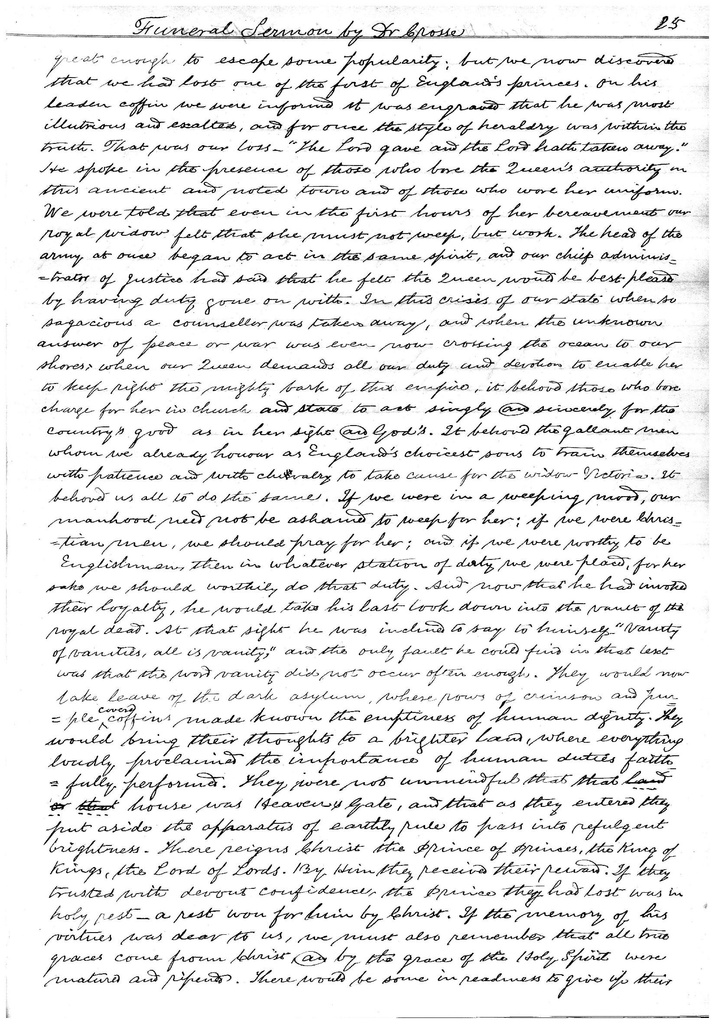 Funeral Sermon by Dr Crosse 25
great enough to escape some popularity; but we now discovered
that we had lost one of the first of England's princes. On his
leaden coffin we were informed it was engraved that he was most
illutrious and exalted, and for once the style of heraldry was within the
truth. That was our loss - "The Lord gave and the Lord hath taken away."
He spoke in the presence of those who bore the Queen's authority in
this ancient and noted town and of those who wore her uniform.
We were told that even in the first hours of her bereavement our
royal widow felt that she must not weep, but work. The head of the
army at once began to act in the same spirit, and our chief adminis=
=trator of justice had said that he felt the Queen would be best pleased
by having duty gone on with. In this crisis of our state when so
sagacious a counseller was taken away, and when the unknown
answer of peace or war was even now crossing the ocean to our
shores; when our Queen demands all our duty and devotion to enable her
to keep right the mighty bark of this empire, it behoved those who bore
charge for her in church and state to act singly an sincerely for the
country's good as in her sight an God's. It behoved the gallant men
whom we already honour as England's choicest sons to train themselves
with patience and with chivalry to take cause for the widow Victoria. It
behoved us all to do the same. If we were in a weeping mood, our
manhood need not be ashamed to weep for her; if we were Chris=
=tian men, we should pray for her; and if we were worthy to be
Englishmen, then in whatever station of duty we were placed, for her
sake we should worthily do that duty. And now that he had invoked
their loyalty, he would take his last look down into the vault of the
royal dead. At that sight he was inclined to say to himself "Vanity
of vanities, all is vanity," and the only fault he could find in that text
was that the word vanity did not occur often enough. They would now
take leave of the dark asylum, where rows of crimson and pur=
=ple covered coffins made known the emptiness of human dignity. They
would bring their thoughts to a brighter land, where everything
loudly proclaimed the importance of human duties faith=
=fully performed. They were not unmindful that that land
or that house was Heaven's Gate, and that as they entered they
put aside the apparatus of earthly rule to pass into refulgent
brightness. There reigns Christ the Prince of Princes, the King of
Kings, the Lord of Lords. By Him they received their reward. If they
trusted with devout confidence, the Prince they had lost was in
holy rest - a rest won for him by Christ. If the memory of his
virtues was dear to us, we must also remember that all true
graces come from Christ an by the grace of the Holy Spirit were
matured and ripened. There would be some in readiness to give up their